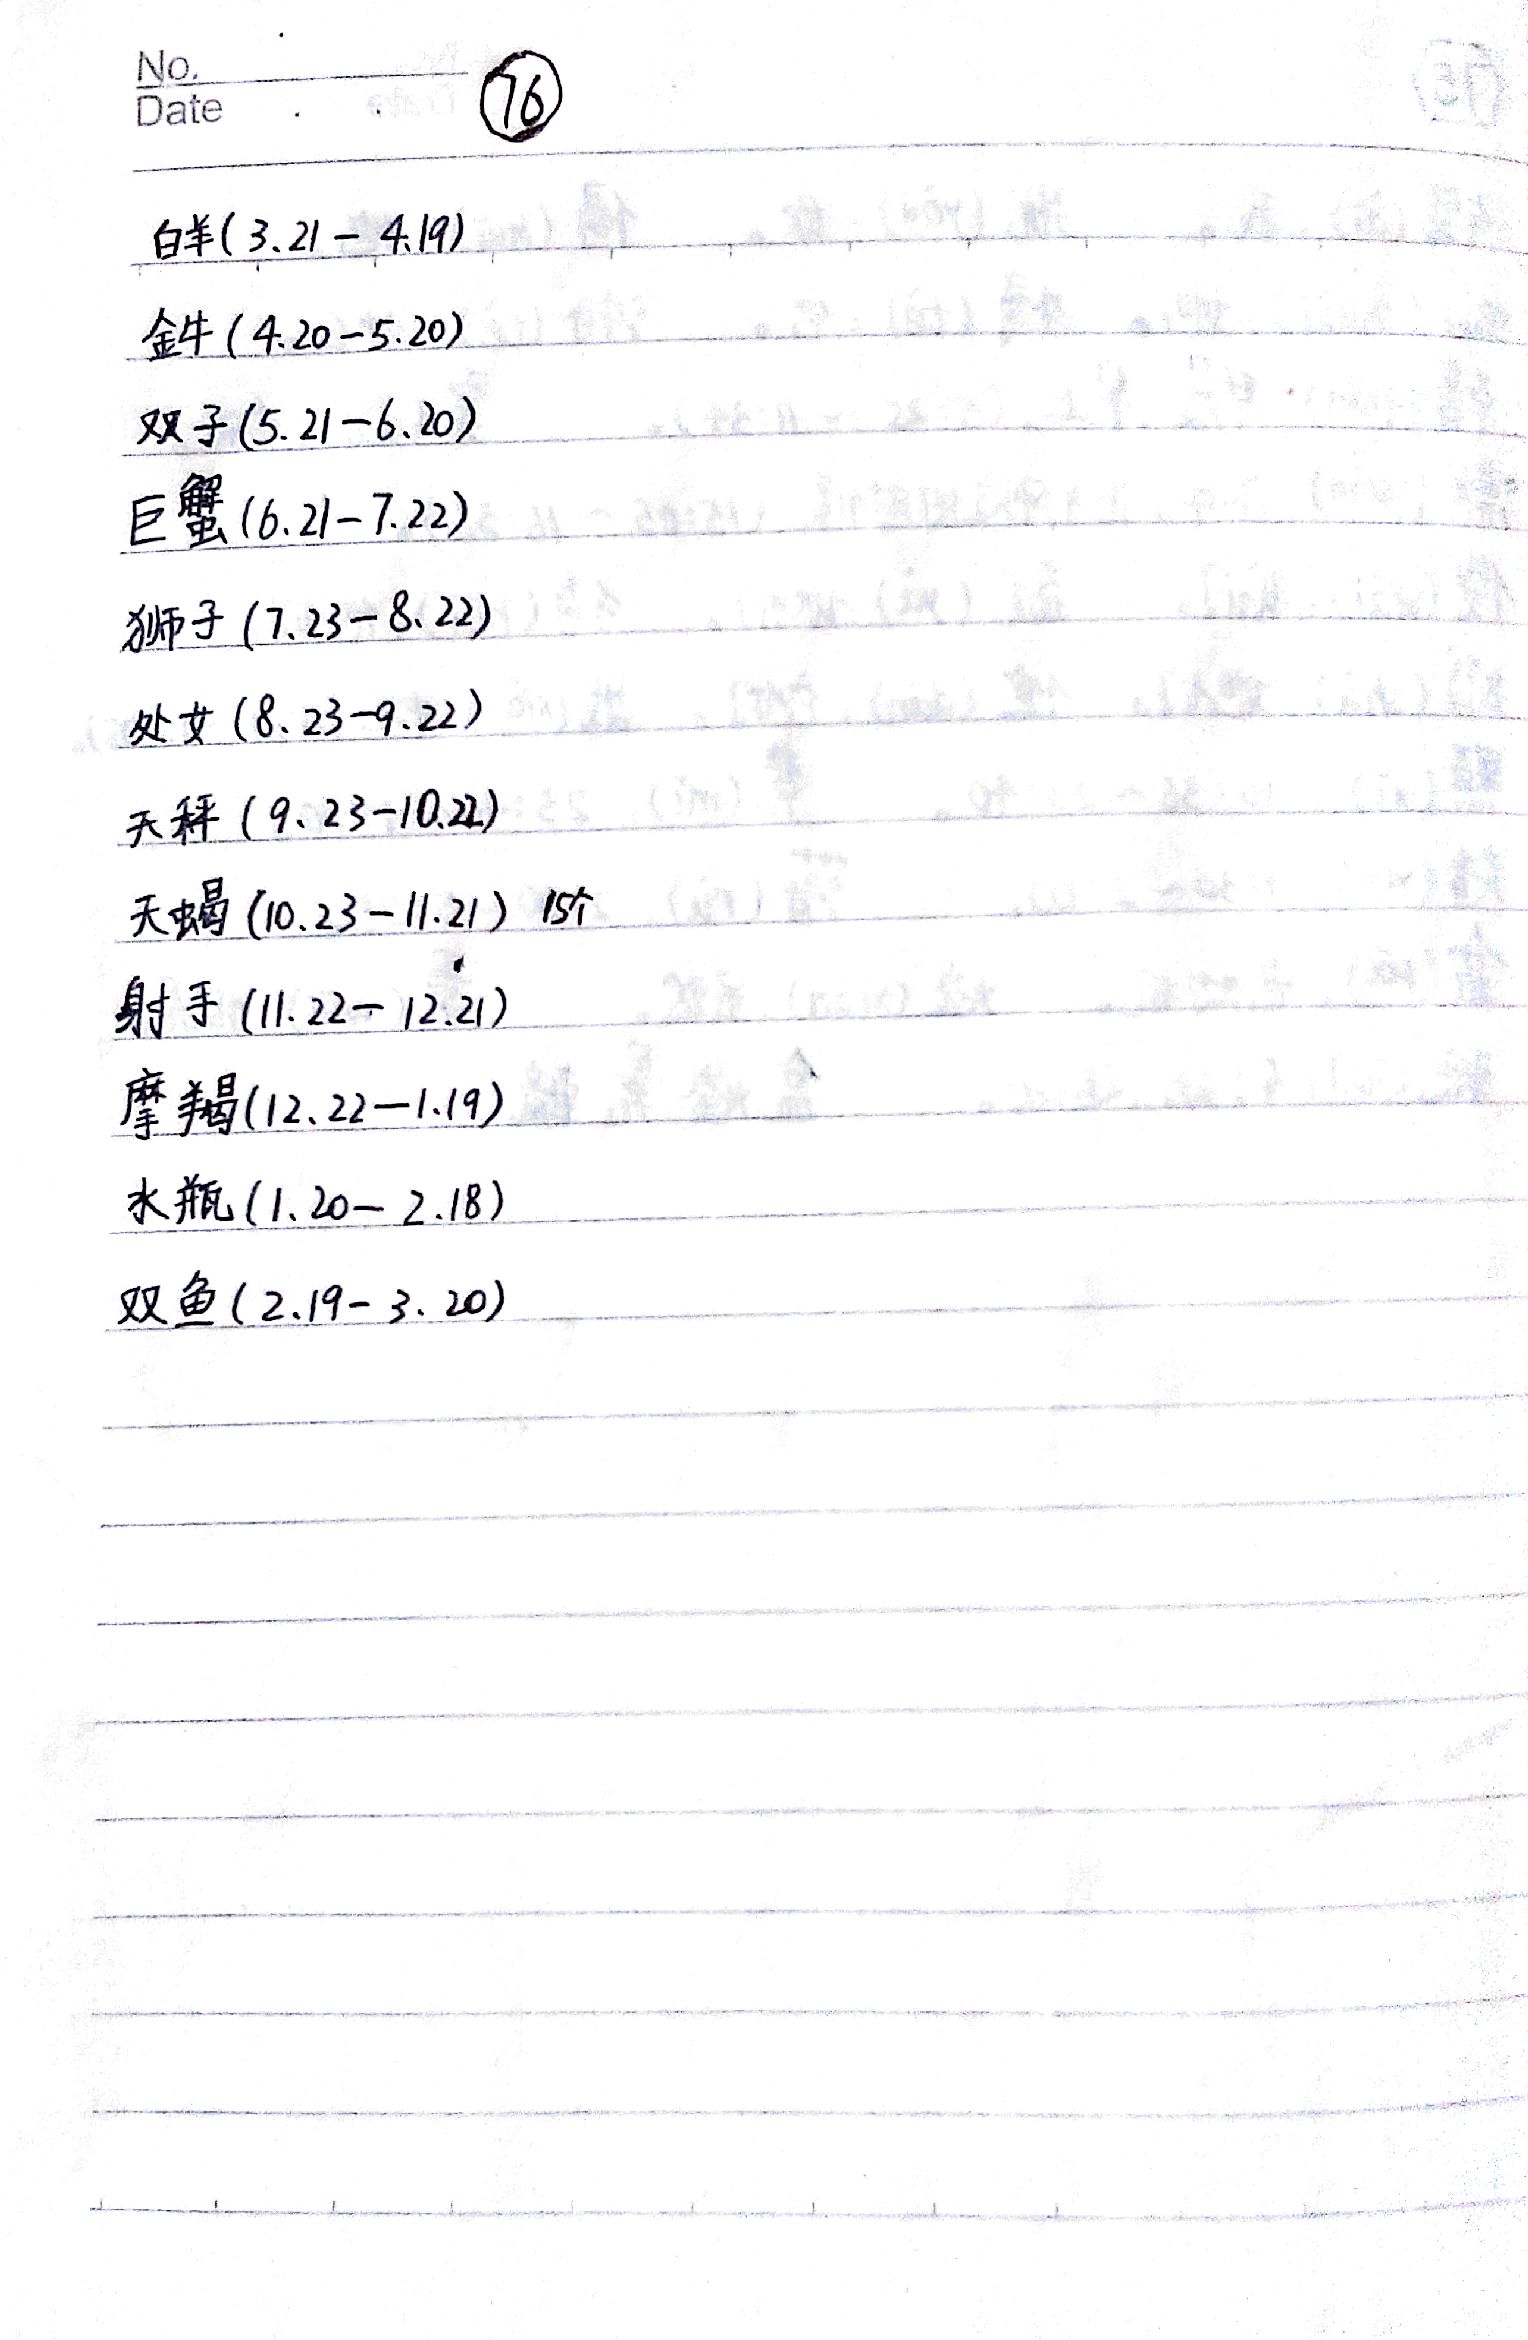 No.
Date
76
白羊(3.21-4.19)
金牛(4.20-5.20)
双子(5.21-6.20)
巨蟹(6.21-7.22)
狮子(7.23-8.22)
处女(8.23-9.22)
天秤(9.23-10.22)
天蝎(10.23-11.21)
射手(11.22-12.21)
摩羯(12.22-1.19)
水瓶(1.20-2.18)
双鱼(2.19-3.20)